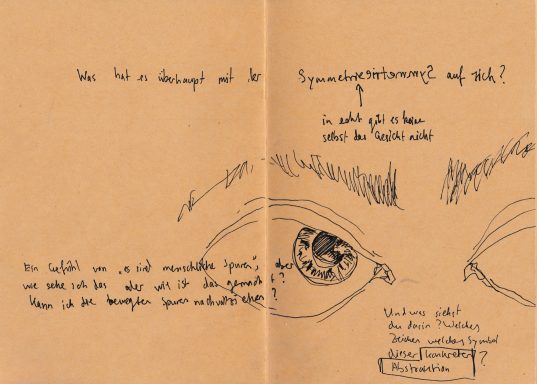 Was hat es überhaupt mit der SymmetrieeirtemmyS auf sich?
in echt gibt es keine
selbst das Gesicht nicht
Ein Gefühl von "es sind menschliche Spuren", aber
wie sehe ich das aber wie ist das gemacht?
Kann ich die bewegten Spuren nachvollziehen?
Und was siehst
du darin? Welches
Zeichen welches Symbol
dieser konkreten?
Abstraktion